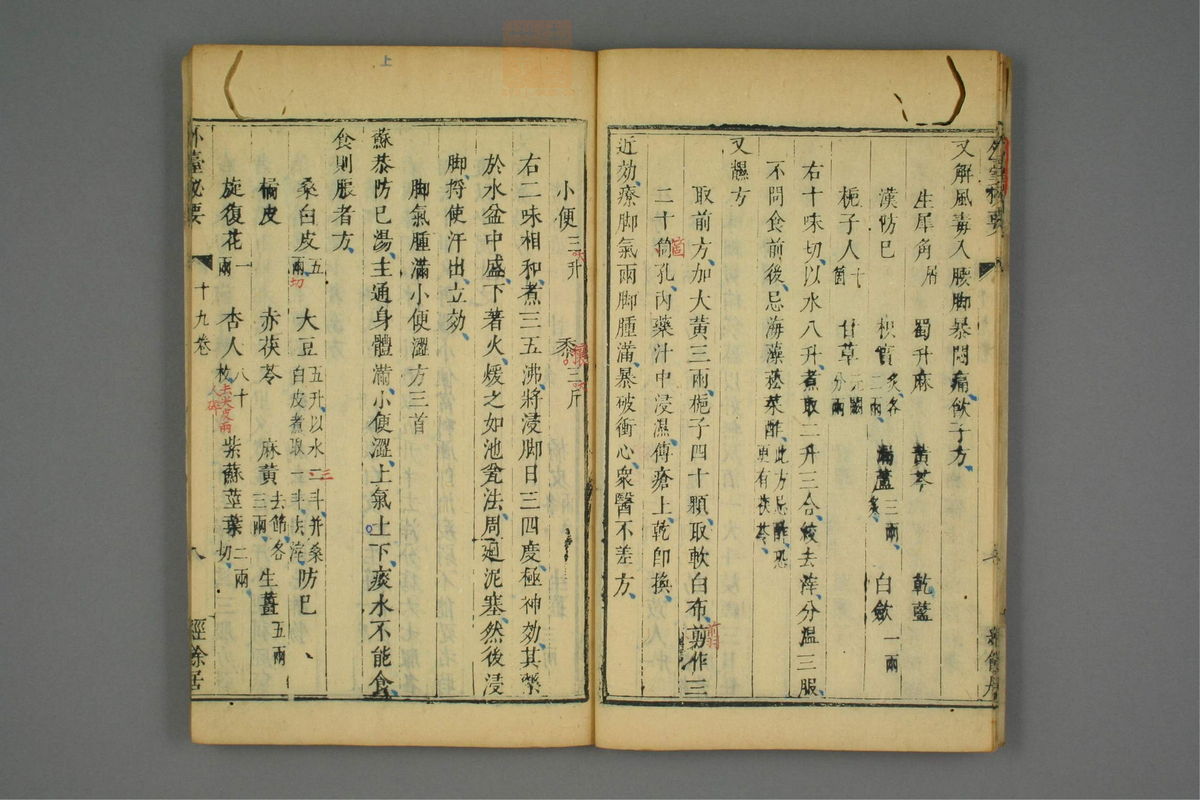 又解風毒入腰脚暴悶痛飲子方
生犀角屑 蜀升麻 黃芩 乾藍
漢防巳 枳實炙各二兩 漏蘆炙三兩 白斂一兩
梔子人十箇 甘草分兩元闕
右十味切以水八升煮取二升三合絞去滓分溫三服
不問食前後忌海藻菘菜酢此方忌酢恐更有茯苓
又濕方
取前方加大黃三兩梔子四十顆取軟白布剪作三
二十箇孔內藥汁中浸濕傅瘡上乾卽換
近効療脚氣兩脚腫滿暴破衝心衆醫不差方
小便三升 黍三斤
右二味相和煮三五沸將浸脚日三四度極神効其藥
於水盆中盛下著火煖之如池瓮法周迴泥塞然後浸
脚捋使汗出立効
脚氣腫滿小便澀方三首
蘇恭防巳湯主通身體滿小便澀上氣上下痰水不能食
食則脹者方
桑白皮五兩切 大豆五升以水二斗幷桑白皮煮取一斗去滓 防巳
橘皮 赤茯苓 麻黃去節各三兩 生薑五兩
旋復花一兩 杏人八十枚 紫蘇莖葉二兩切
外臺秘要 十九卷 八 經餘居